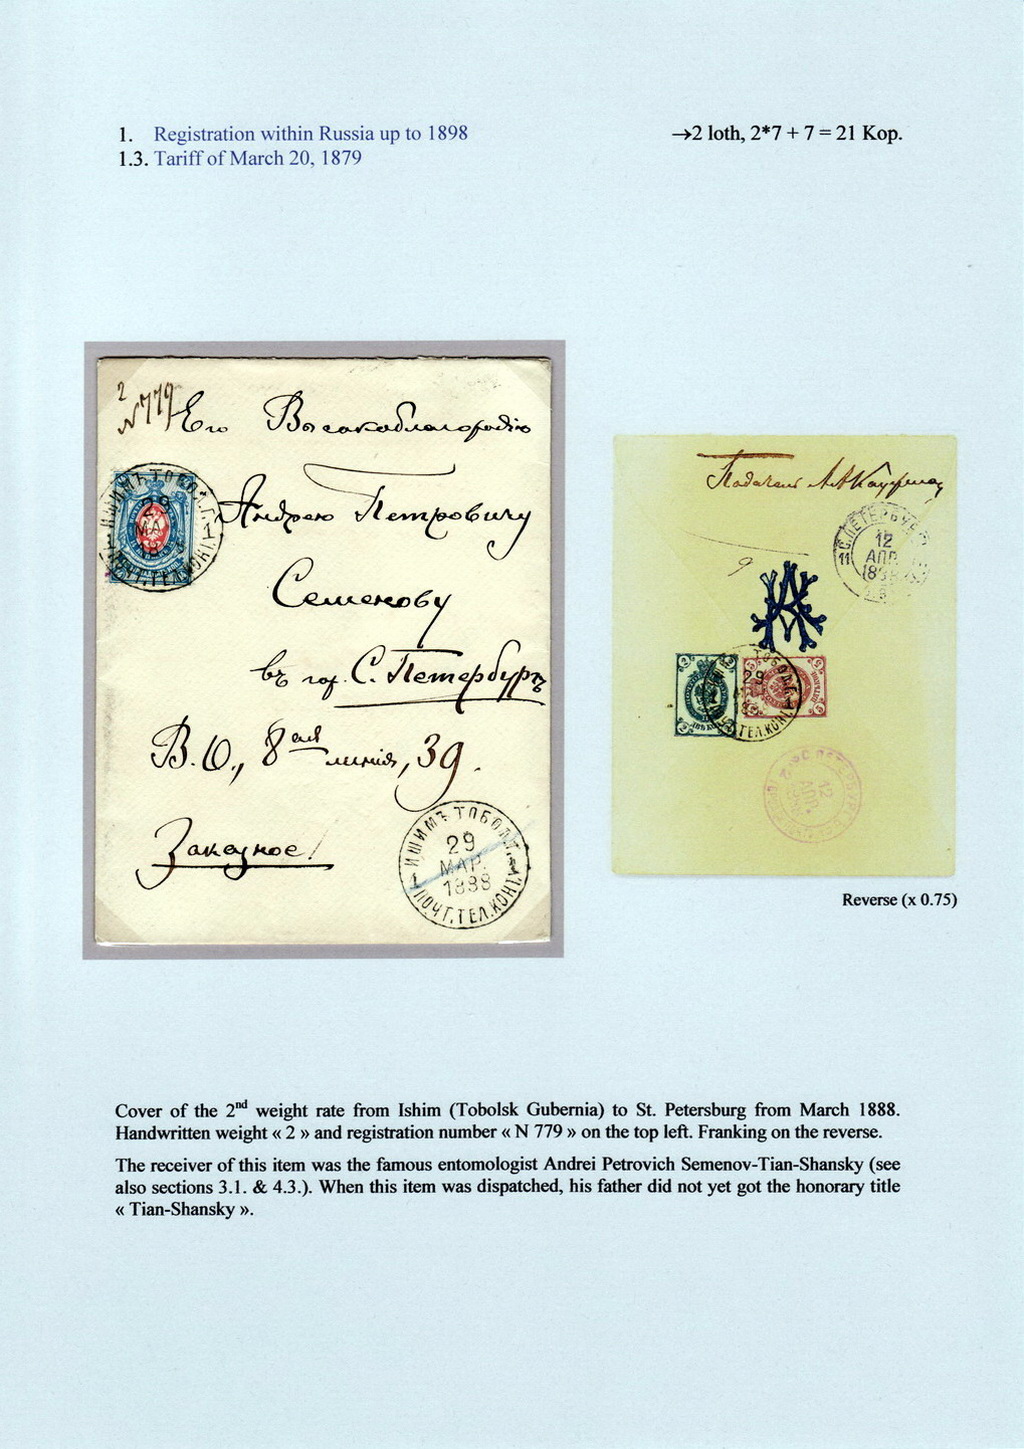 1. Registration within Russia up to 1898
→2 loth, 2*7 + 7 = 21 Kop.
1.3. Tariff of March 20, 1879
2
N779
Его Высокоблагородію
Андрею Петровичу
Семенову
въ гор. С. Петербургъ
В.О., 8ая линія, 39.
Заказное!
ИШИМЪ ТОБОЛ.Г.
29
МАР.
1888
ПОЧТ.ТЕЛ.КОН.
1
ИШИМЪ ТОБОЛ.Г.
29
МАР.
1888
ПОЧТ.ТЕЛ.КОН.
1
Податель А.А.
С.ПЕТЕРБУРГ
12
АПР.
188
11
9
29
ТЕЛ.КОН.
1
ПЕТЕРБУРГ
12
АПР.
Reverse (x 0.75)
Cover of the 2nd weight rate from Ishim (Tobolsk Gubernia) to St. Petersburg from March 1888.
Handwritten weight « 2 » and registration number « N 779 » on the top left. Franking on the reverse.
The receiver of this item was the famous entomologist Andrei Petrovich Semenov-Tian-Shansky (see
also sections 3.1. & 4.3.). When this item was dispatched, his father did not yet got the honorary title
« Tian-Shansky ».